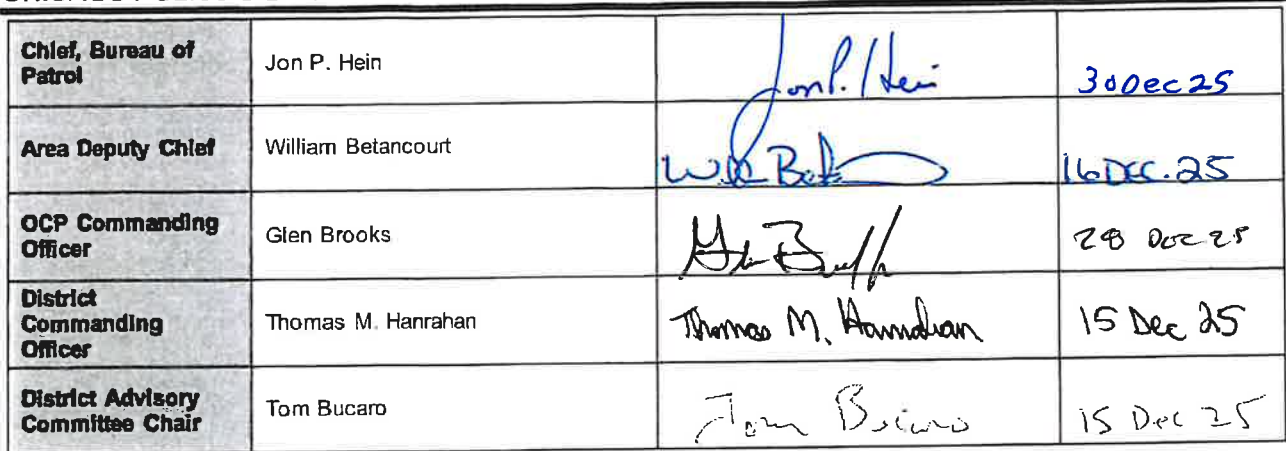 Chief, Bureau of
Patrol
Jon P. Hein
Jon P. Hein
30Dec25
Area Deputy Chief
William Betancourt
16DEC.25
OCP Commanding
Officer
Glen Brooks
Dec 25
District
Commanding
Officer
Thomas M. Hanrahan
Thomas M. Hanrahan
15 Dec 25
District Advisory
Committee Chair
Tom Bucaro
Tom Bucaro
15 Dec 25